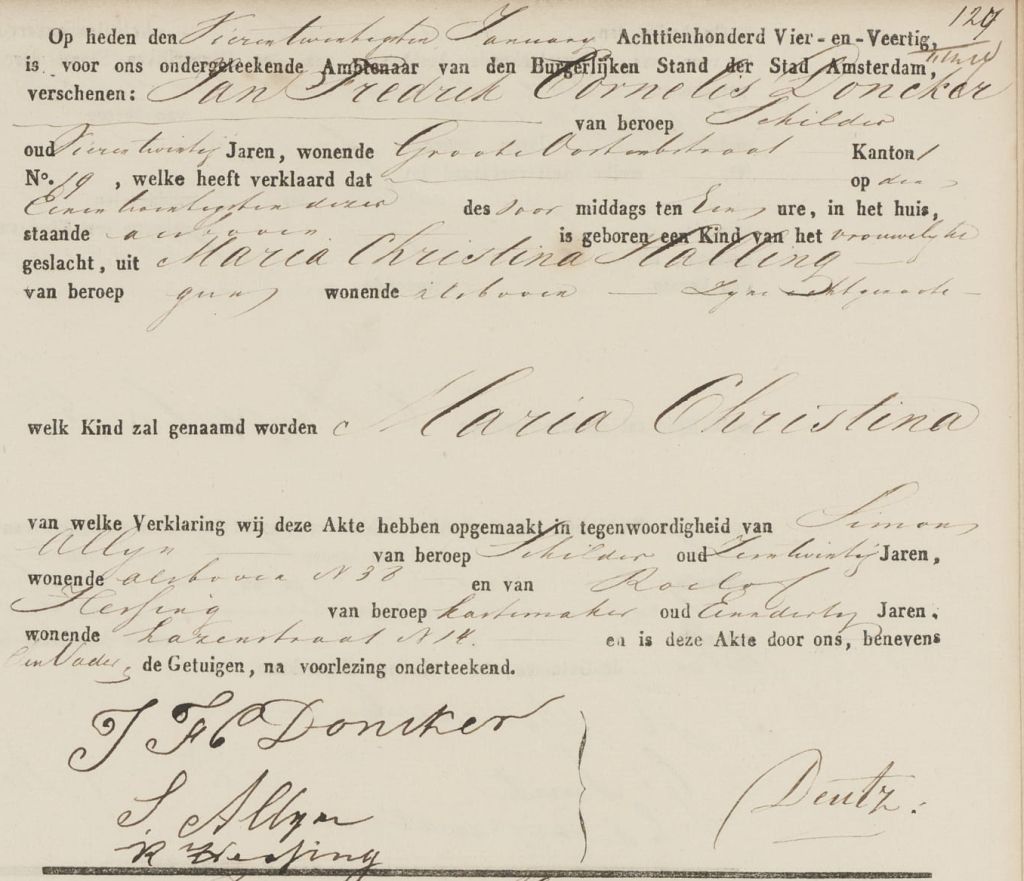 127
Op heden den Vierentwintigsten January Achttienhonderd Vier-en-Veertig,
is voor ons ondergeteekende Ambtenaar van den Burgerlijken Stand der Stad Amsterdam,
verschenen: Jan Fredrik Cornelis Doncker
van beroep Schilder
oud Vierentwintig Jaren, wonende Groote Kanton 1
No. 19, welke heeft verklaard dat op den
Eenentwintigsten dezer des voor middags ten Een ure, in het huis,
staande alsboven is geboren een Kind van het vrouwelyke
geslacht, uit Maria Christina Halling
van beroep geen wonende alsboven Zyne echtgenoote
welk Kind zal genaamd worden Maria Christina
van welke Verklaring wij deze Akte hebben opgemaakt in tegenwoordigheid van Simon
Allyn van beroep Schilder oud Jaren,
wonende alsboven N 38 en van Roelof
Hessing van beroep kastemaker oud Eenendertig Jaren,
wonende Lazenstraat N 14 en is deze Akte door ons, benevens
den Vader, de Getuigen, na voorlezing onderteekend.
J F C Doncker
Deutz.
S. Allyn
R Hessing